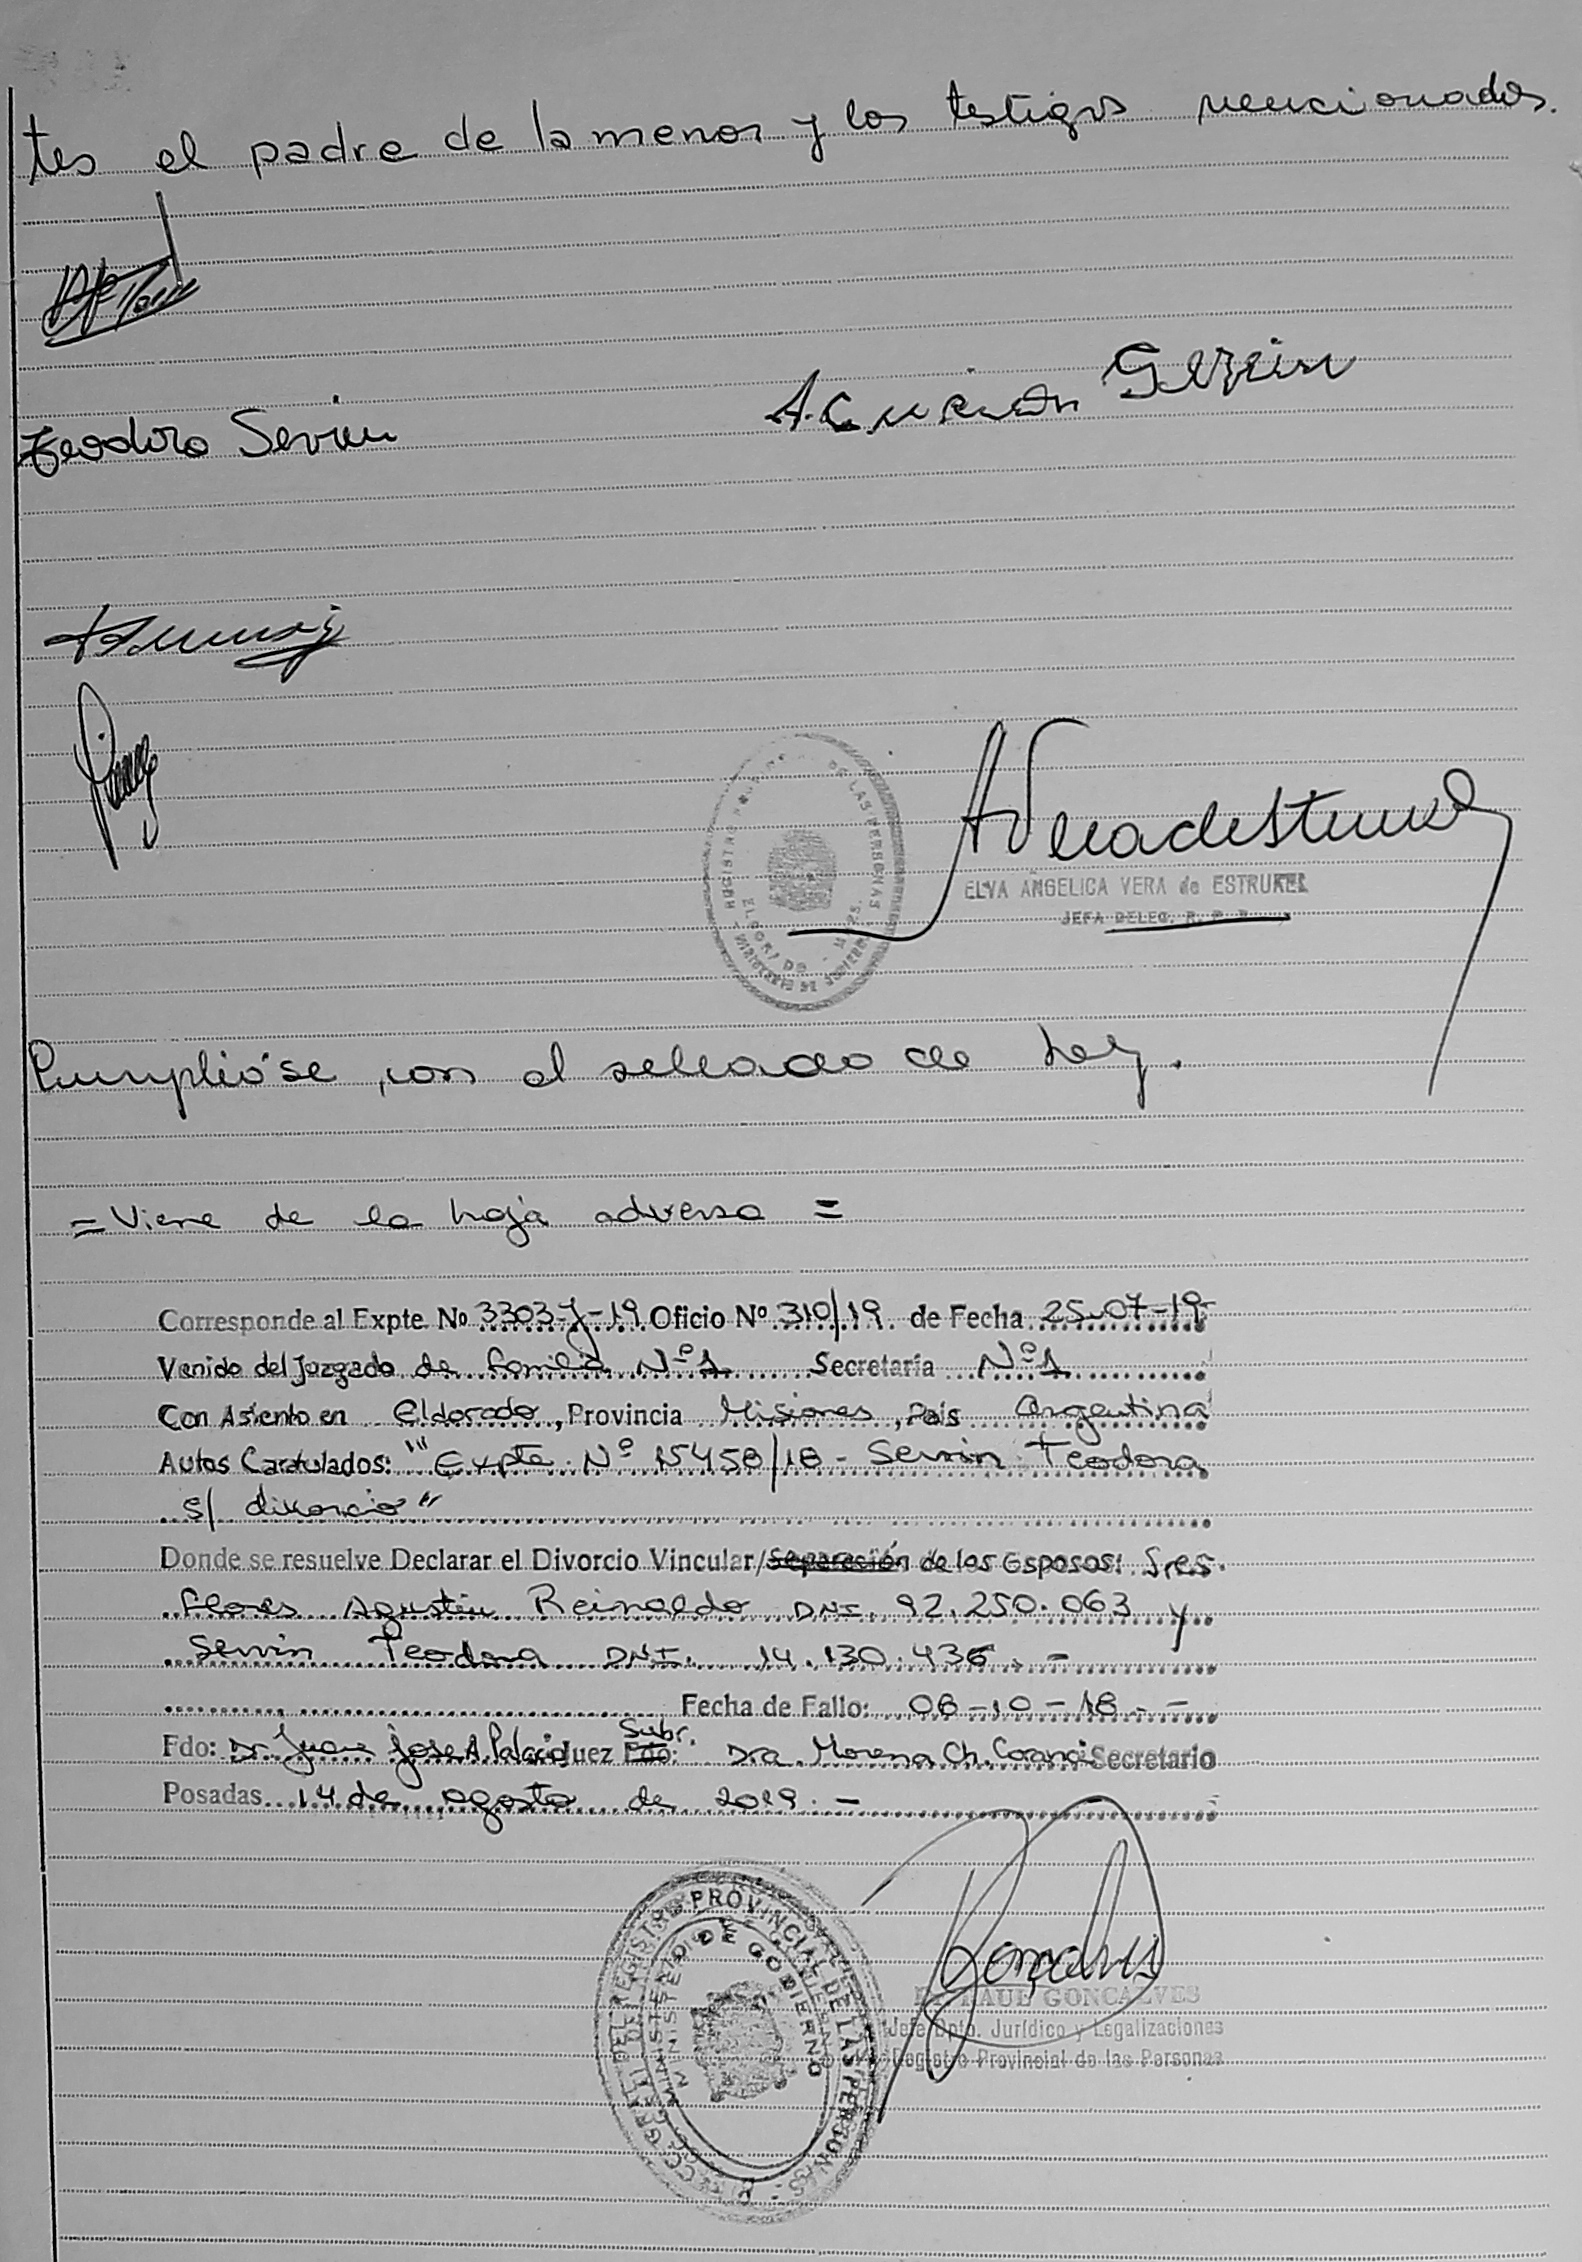 tes el padre de la menor y los testigos mencionados.
Teodora Servin
Servin
ELVA ANGELICA VERA de ESTRUKEL
JEFA DELEG. R. P. P.
DE LAS PERSONAS
Cumplióse con el sellado de ley.
= Viene de la hoja adversa =
Corresponde al Expte Nº 3303-J-19 Oficio Nº 310/19 de Fecha 25-07-19
Venido del Juzgado de Familia Nº 1 Secretaría Nº 1
Con Asiento en Eldorado, Provincia Misiones, País Argentina
Autos Caratulados: "Expte. Nº 15458/18 - Servin Teodora
s/ divorcio"
Donde se resuelve Declarar el Divorcio Vincular/Separación de los Esposos: Sres.
Flores Agustin Reinaldo DNI. 92.250.063 y
Servin Teodora DNI. 14.130.436. -
Fecha de Fallo: 08-10-18. -
Fdo: Dr. Juan Jose A. Palacio Juez Subr. Fdo: Dra. Morena Ch. Secretario
Posadas 14 de agosto de 2019. -
REGISTRO PROVINCIAL DE LAS PERSONAS
MINISTERIO DE GOBIERNO
RAUL GONCALVES
Jefe Dpto. Jurídico y Legalizaciones
Registro Provincial de las Personas